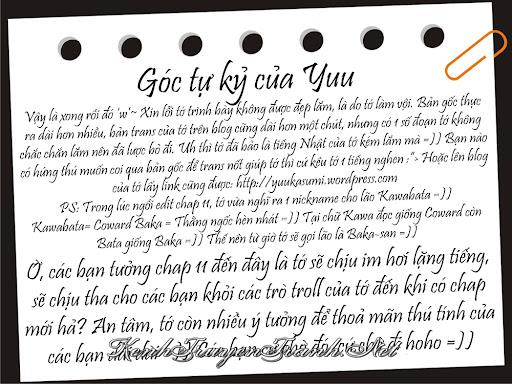 Góc tự kỷ của Yuu
Vậy là xong rồi đó 'w'~ Xin lỗi tớ trình bày không được đẹp lắm, là do tớ làm vội. Bản gốc thực
ra dài hơn nhiều, bản trans của tớ trên blog cũng dài hơn một chút, nhưng có 1 số đoạn tớ không
chắc chắn lắm nên đã lược bỏ đi. Uh thì tớ đã bảo là tiếng Nhật của tớ kém lắm mà =]] Bạn nào
có hứng thú muốn coi qua bản gốc để trans nốt giúp tớ thì cứ kêu tớ 1 tiếng nghen :"> Hoặc lên blog
của tớ lấy link cũng được: http://yuukasumi.wordpress.com
PS: Trong lúc ngồi edit chap 11, tớ vừa nghĩ ra 1 nickname cho lão Kawabata =]]
Kawabata= Coward Baka = Thằng ngốc hèn nhát =]] Tại chữ Kawa đọc giống Coward còn
Bata giống Baka =]] Thế nên từ giờ tớ sẽ gọi lão là Baka-san =]]
Ờ, các bạn tưởng chap 11 đến đây là tớ sẽ chịu im hơi lặng tiếng,
sẽ chịu tha cho các bạn khỏi các trò troll của tớ đến khi có chap
mới hả? An tâm, tớ còn nhiều ý tưởng để thoả mãn thú tính của
các bạn đi hoho =]]